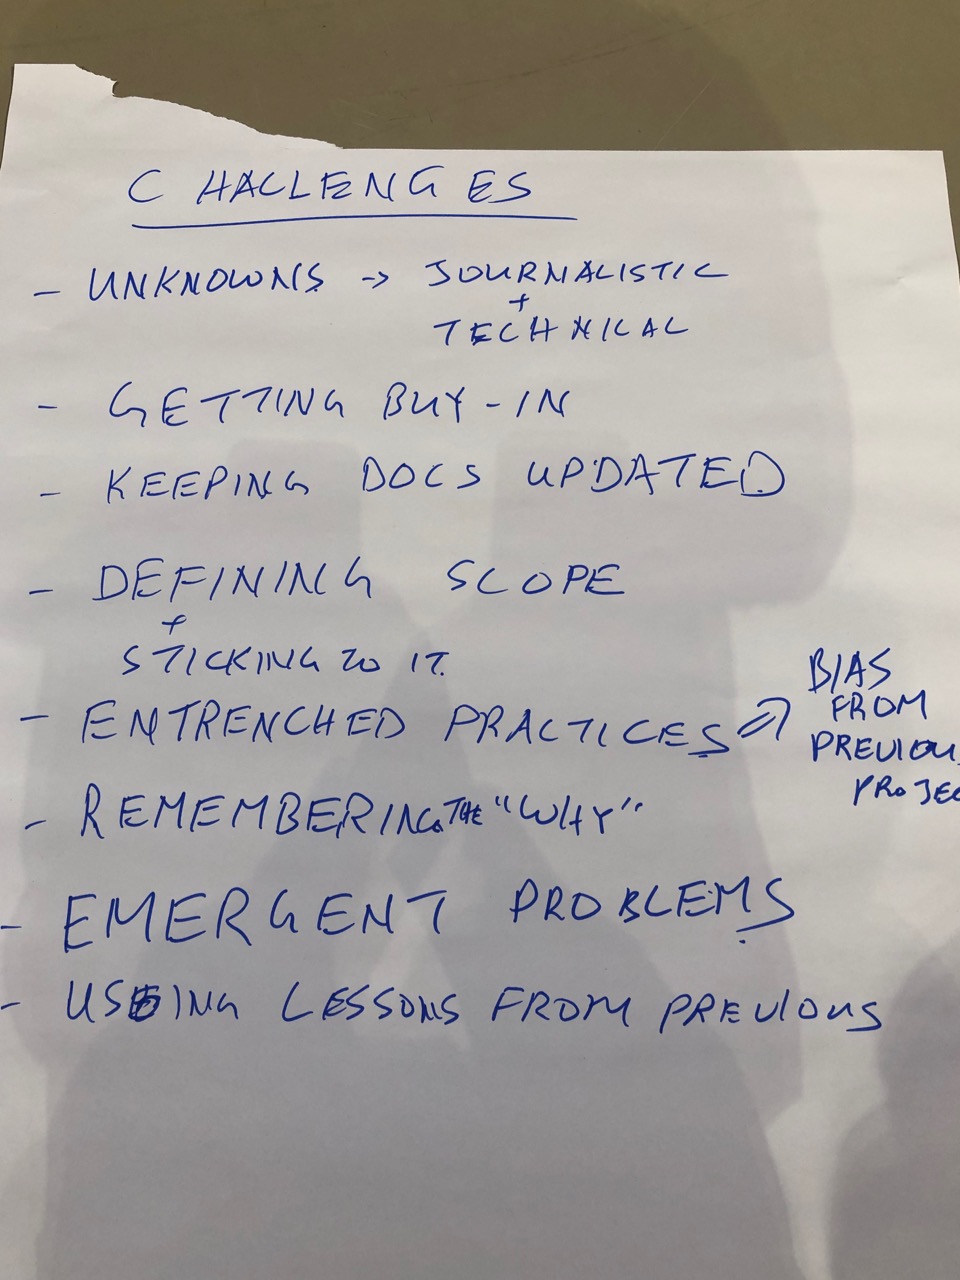 CHALLENGES
- UNKNOWNS → JOURNALISTIC
+
TECHNICAL
- GETTING BUY-IN
- KEEPING DOCS UPDATED
- DEFINING SCOPE
+
STICKING TO IT.
- ENTRENCHED PRACTICES
BIAS
FROM
PREVIOU
PROJEC
- REMEMBERING THE "WHY"
- EMERGENT PROBLEMS
- USING LESSONS FROM PREVIOUS